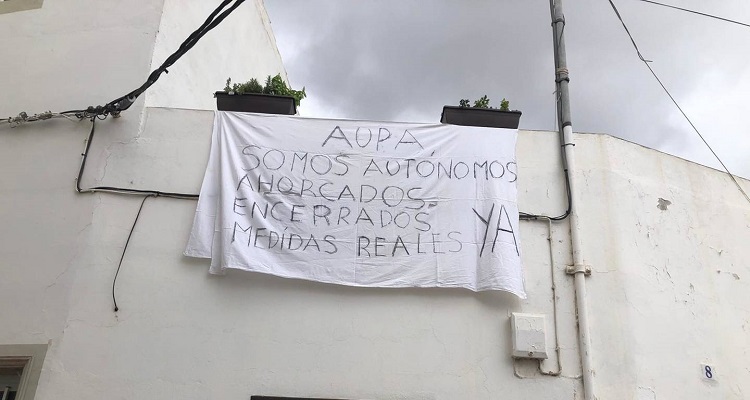 AUPA
SOMOS AUTÓNOMOS
AHORCADOS.
ENCERRADOS
MEDIDAS REALES YA
8